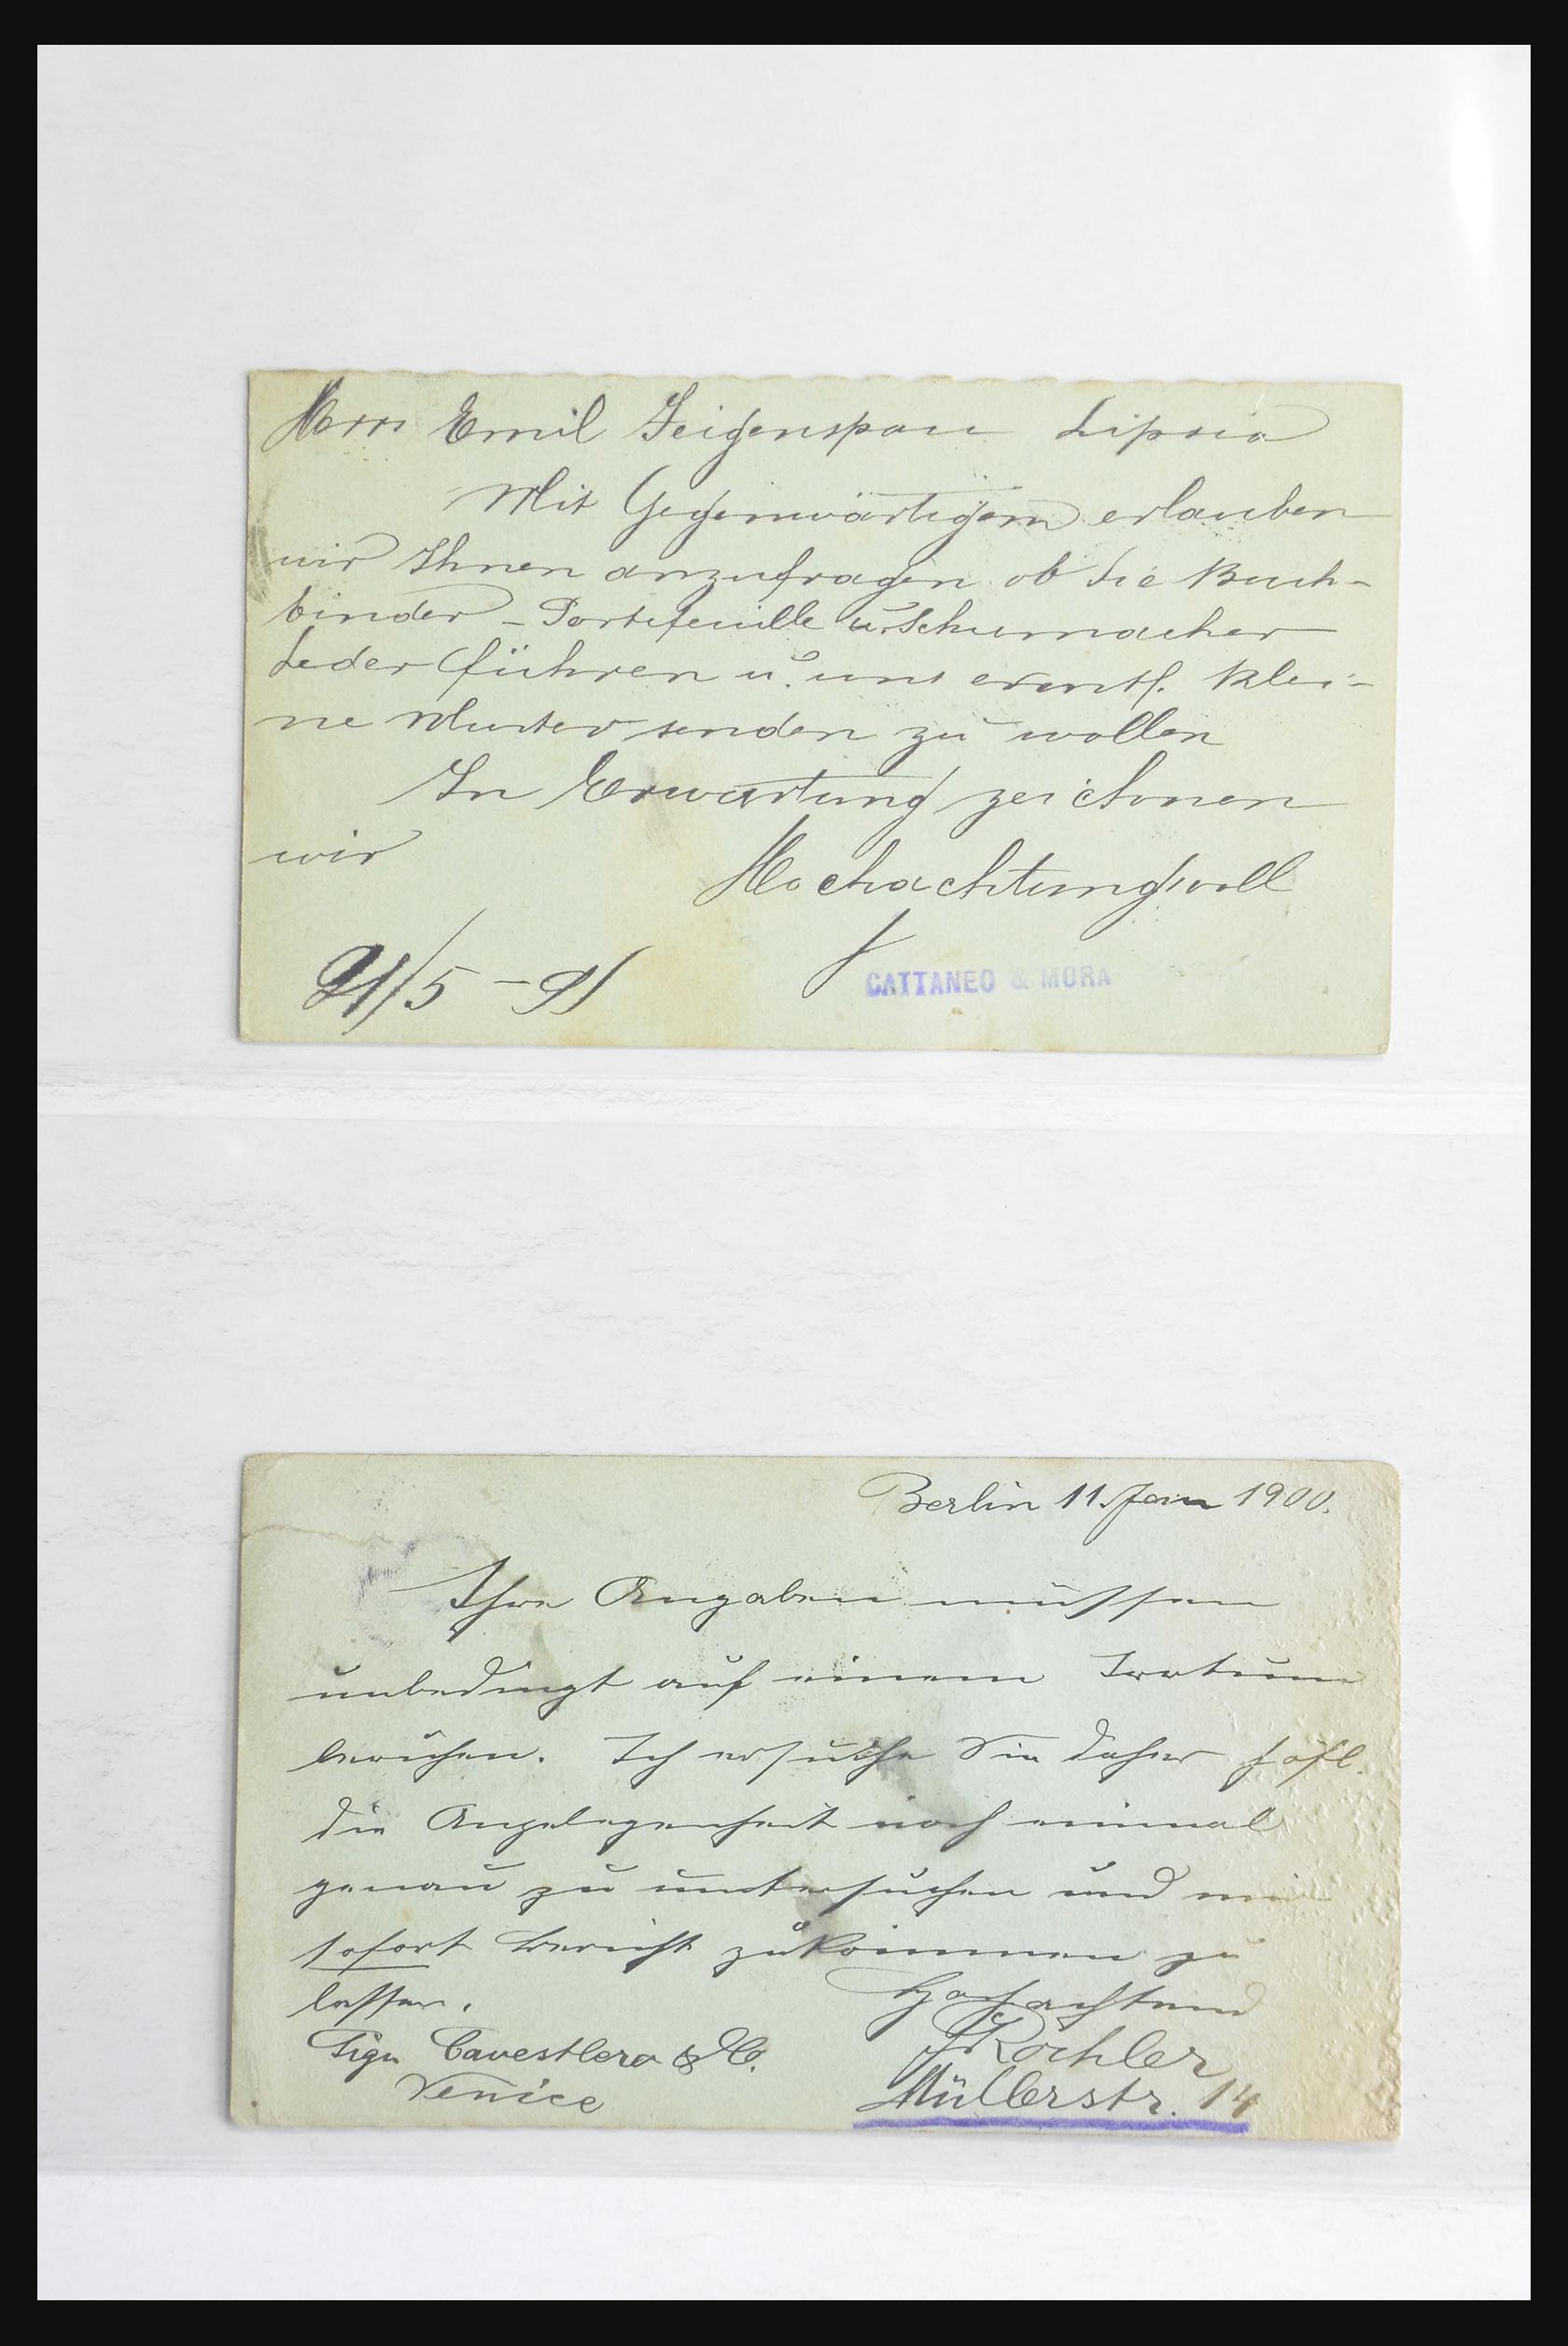 Herrn Emil Geigenspan Lipsia
Mit Gegenwärtigem erlauben
wir Ihnen anzufragen ob Sie Buch-
binder - Portefeuille u. Schumacher
Leder führen u. uns eventl. klei-
ne Muster senden zu wollen
In Erwartung zeichnen
wir
Hochachtungsvoll
21/5 - 91
CATTANEO & MORA
Berlin 11. Jan 1900.
Ihre Angaben müssen
unbedingt auf einem Irrtum
beruhen. Ich ersuche Sie daher höfl.
die Angelegenheit noch einmal
genau zu untersuchen und mir
sofort Bericht zukommen zu
lassen.
Hochachtend
Sign Cavestlero & Co.
J Köhler
Venice
Müllerstr. 14